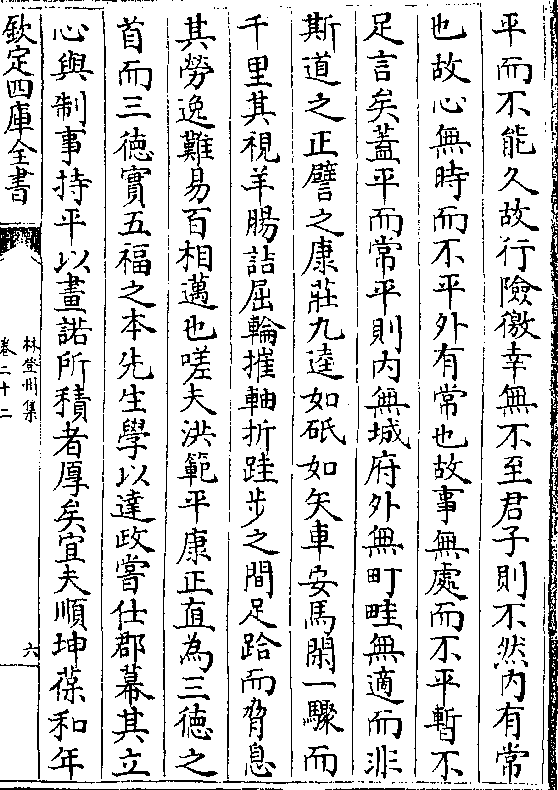 平而不能久故行險徼幸無不至君子則不然内有常
也故心無時而不平外有常也故事無處而不平暫不
足言矣蓋平而常平則内無城府外無町畦無適而非
斯道之正譬之康莊九逵如砥如矢車安馬閑一驟而
千里其視羊腸詰屈輪摧軸折跬步之間足跲而脅息
其勞逸難易百相邁也嗟夫洪範平康正直為三徳之
首而三徳實五福之本先生學以達政嘗仕郡幕其立
心與制事持平以畫諾所積者厚矣宜夫順坤葆和年
欽定四庫全書
林登州集
卷二十二
六